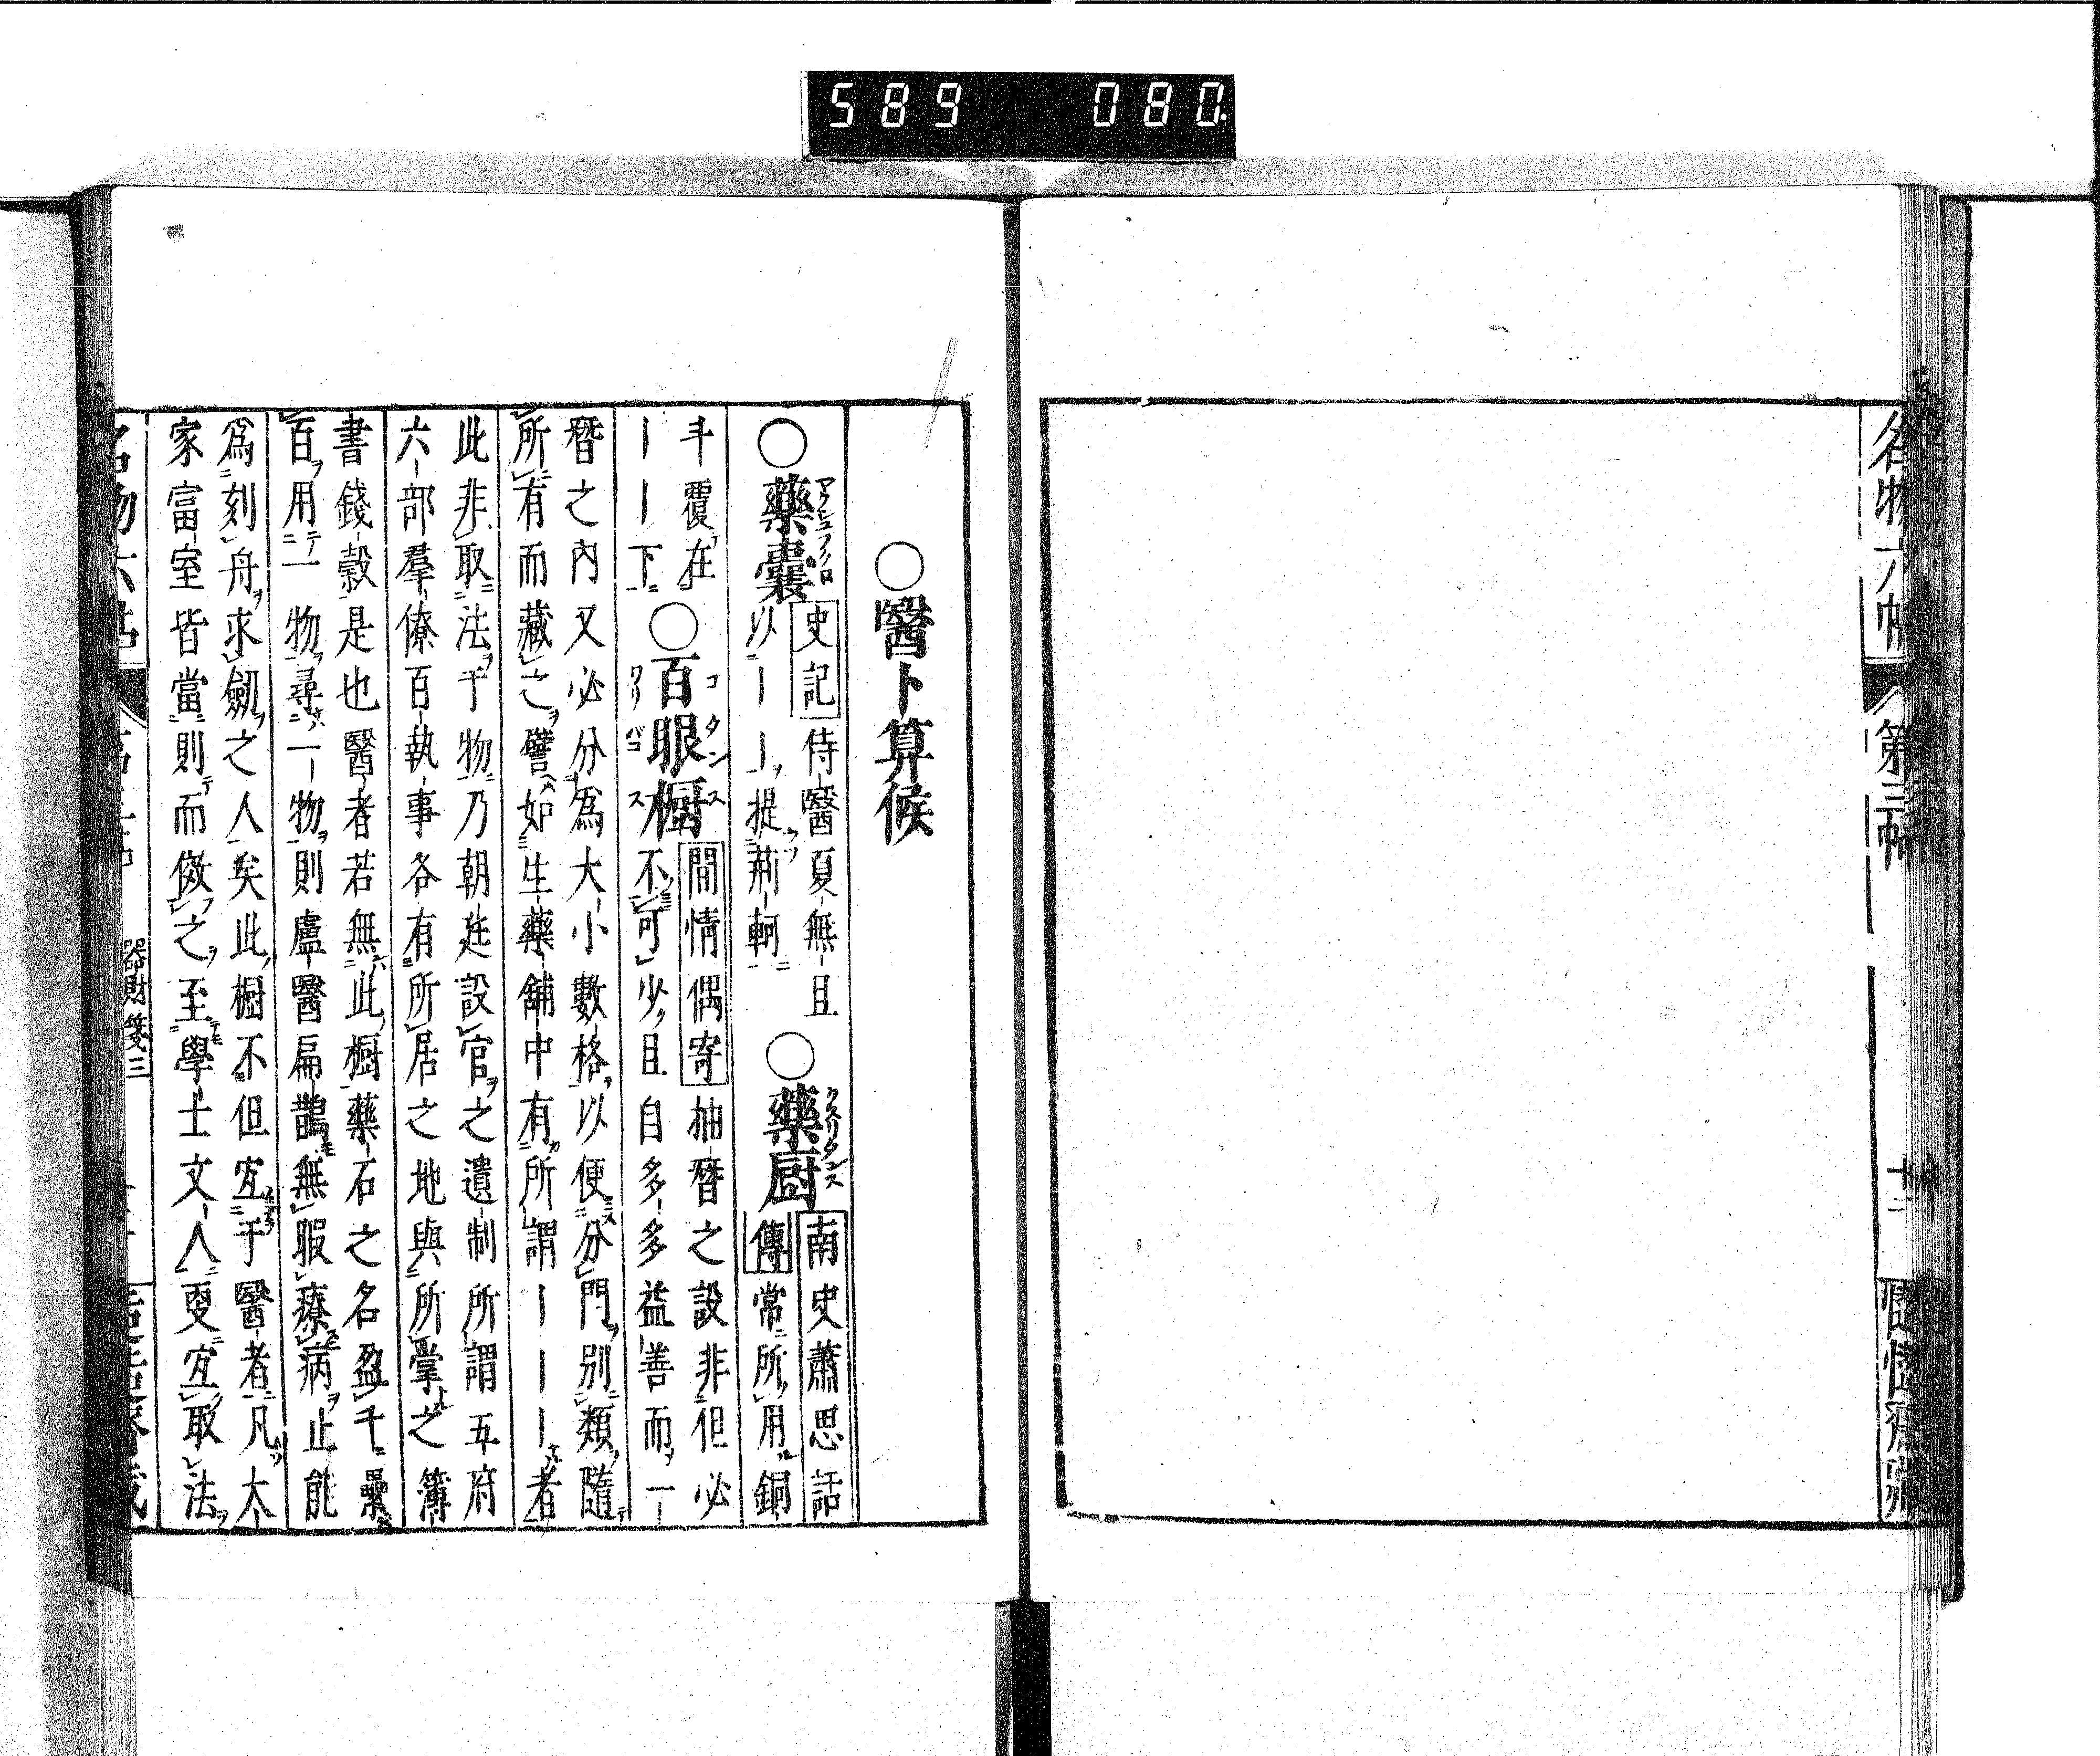 589 080
名物六帖 第三帖 十二
○醫卜算候
○藥囊 史記 侍醫夏無且
以｜｜提荊軻
○藥厨 クスリタンス 南史蕭思話
傳 常所用銅
斗覆在
｜｜下
○百眼櫥 間情偶寄 抽替之設非但必
不可少且自多多益善而一
替之內又必分爲大小數格以便分門別類隨
所有而藏之譬如生藥舖中有所謂｜｜｜者
此非取法于物乃朝廷設官之遺制所謂五府
六部羣僚百執事各有所居之地與所掌之簿
書錢穀是也醫者若無此櫥藥石之名盈千累
百用一物尋一物則盧醫扁鵲無暇療病止能
爲刻舟求劍之人矣此櫥不但宜于醫者凡大
家富室皆當則而傚之至學士文人更宜取法
器財箋三